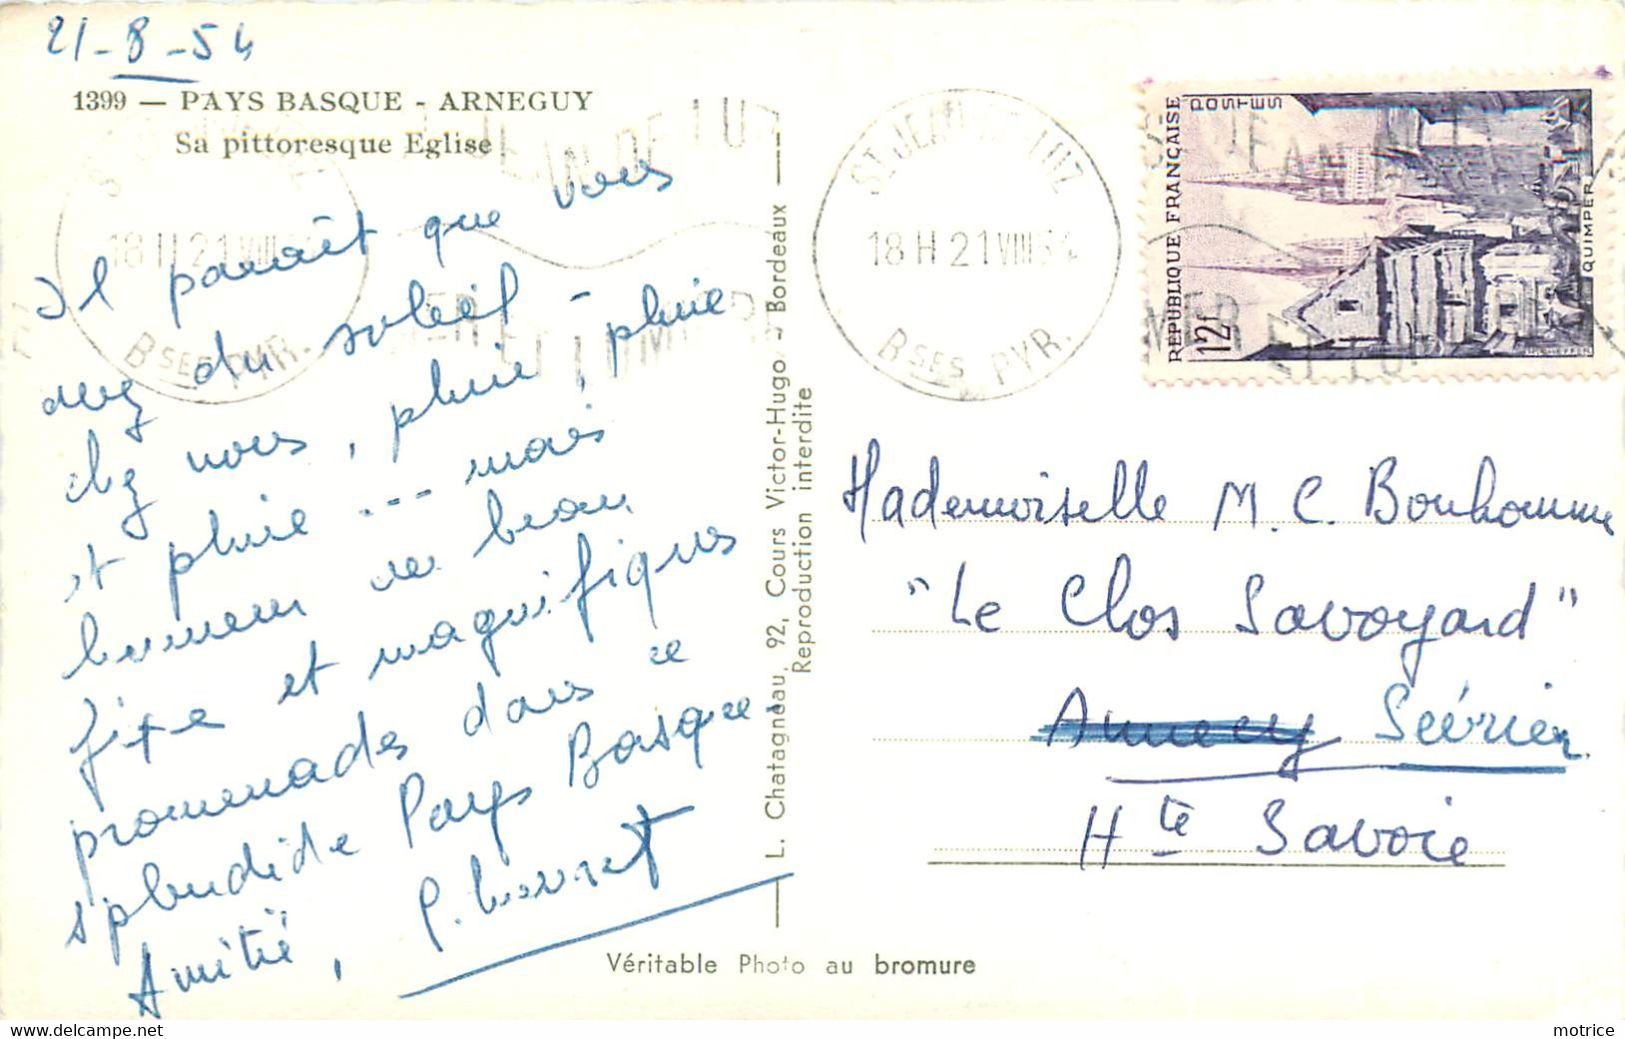 21-8-54
1399 — PAYS BASQUE - ARNEGUY
Sa pittoresque Eglise
Il parait que vous
avez du soleil -
chez nous, pluie, pluie
et pluie --- mais
humeur au beau
fixe et magnifiques
promenades dans ce
splendide Pays Basque.
Amitié,
L. Chatagneau, 92, Cours Victor-Hugo - Bordeaux
Reproduction interdite
Véritable Photo au bromure
ST JEAN DE LUZ
18 H 21 VIII 54
Bses PYR.
REPUBLIQUE FRANÇAISE
POSTES
12f
QUIMPER
Mademoiselle M. C. Bonhomme
"Le Clos Savoyard"
Annecy Sévrier
Hte Savoie
motrice